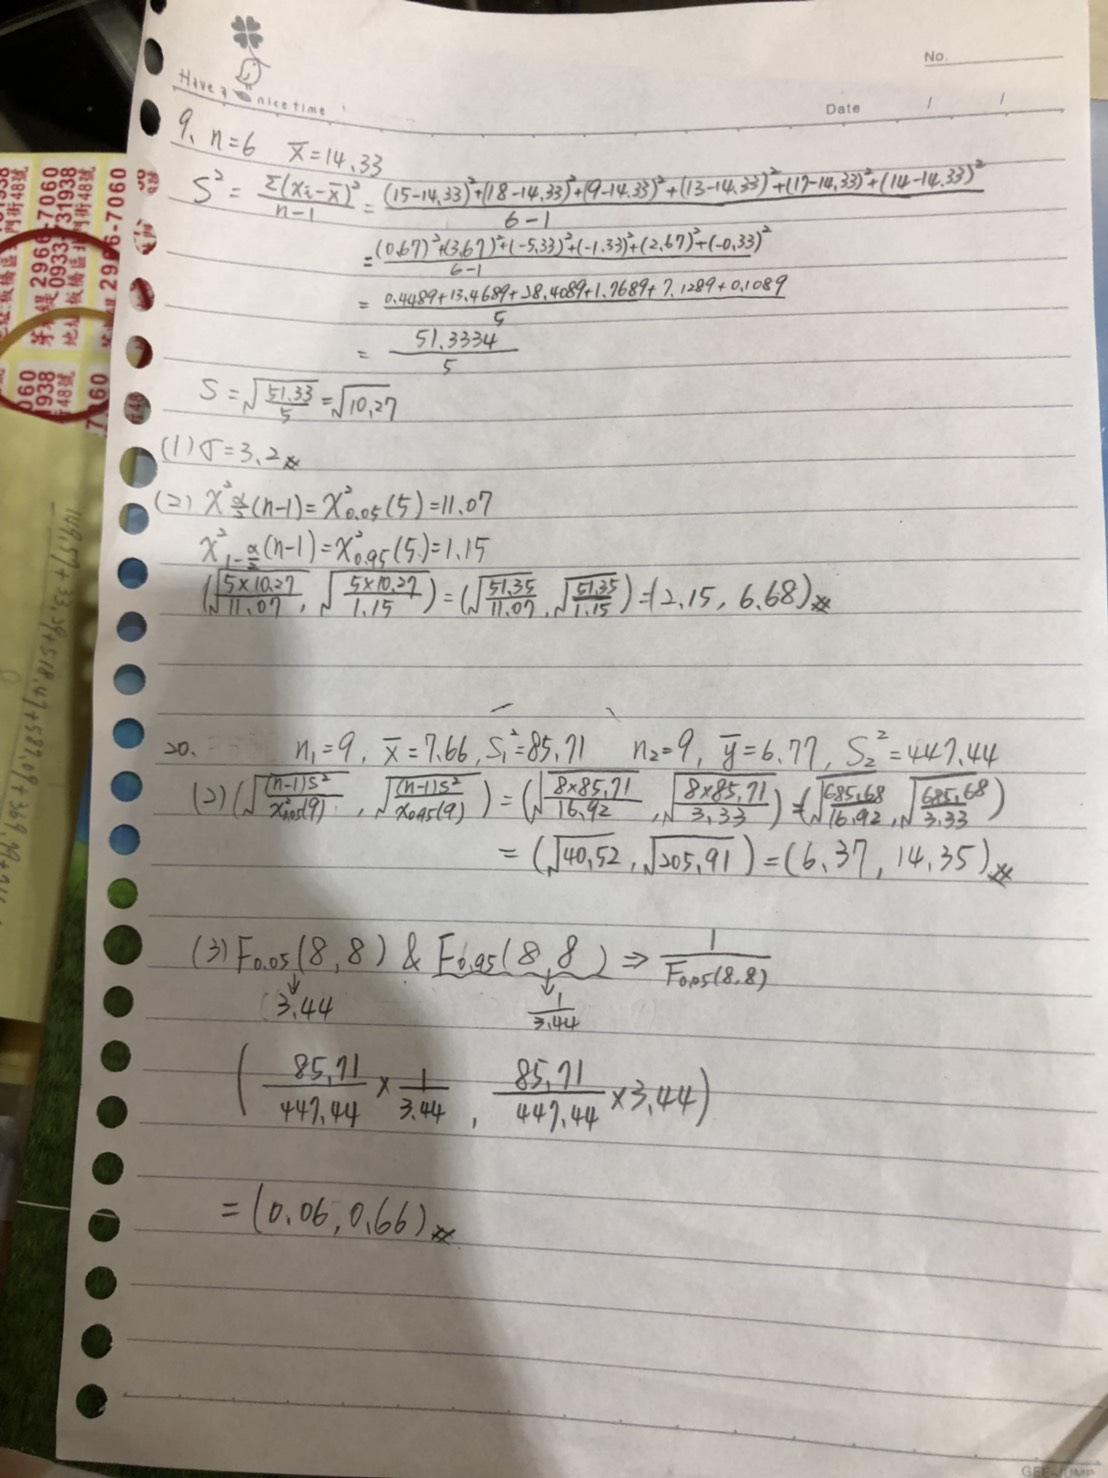 Have a nice time
No.
Date / /
9. n=6 x̄=14.33
S² = Σ(xi-x̄)²/n-1 = (15-14.33)²+(18-14.33)²+(9-14.33)²+(13-14.33)²+(17-14.33)²+(14-14.33)²/6-1
= (0.67)²+(3.67)²+(-5.33)²+(-1.33)²+(2.67)²+(-0.33)²/6-1
= 0.4489+13.4689+28.4089+1.7689+7.1289+0.1089/5
= 51.3334/5
S = √51.33/5 = √10.27
(1) σ=3.2
(2) χ²α/2(n-1)=χ²0.05(5)=11.07
χ²1-α/2(n-1)=χ²0.95(5)=1.15
(√5×10.27/11.07, √5×10.27/1.15) = (√51.35/11.07, √51.35/1.15) = (2.15, 6.68)
20. n₁=9, x̄=7.66, S₁²=85.71 n₂=9, ȳ=6.77, S₂²=447.44
(2) (√(n-1)S²/χ²0.05(9), √(n-1)S²/χ0.95(9)) = (√8×85.71/16.92, √8×85.71/3.33) = (√685.68/16.92, √685.68/3.33)
= (√40.52, √205.91) = (6.37, 14.35)
(3) F0.05(8,8) & F0.95(8,8) ⇒ 1/F0.05(8.8)
↓ ↓
3.44 1/3.44
(85.71/447.44 × 1/3.44, 85.71/447.44 × 3.44)
= (0.06, 0.66)
2966-7060
0933-731938
2966-7060